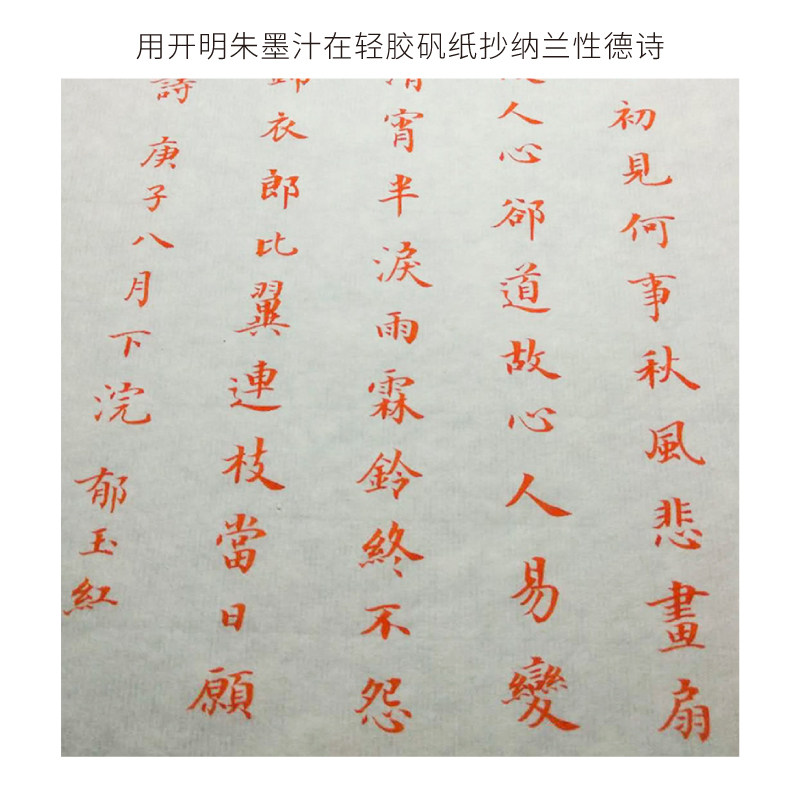 用开明朱墨汁在轻胶矾纸抄纳兰性德诗
初見何事秋風悲畫扇
人心郤道故心人易變
清宵半淚雨霖鈴終不怨
錦衣郎比翼連枝當日願
詩 庚子八月下浣 郁玉紅